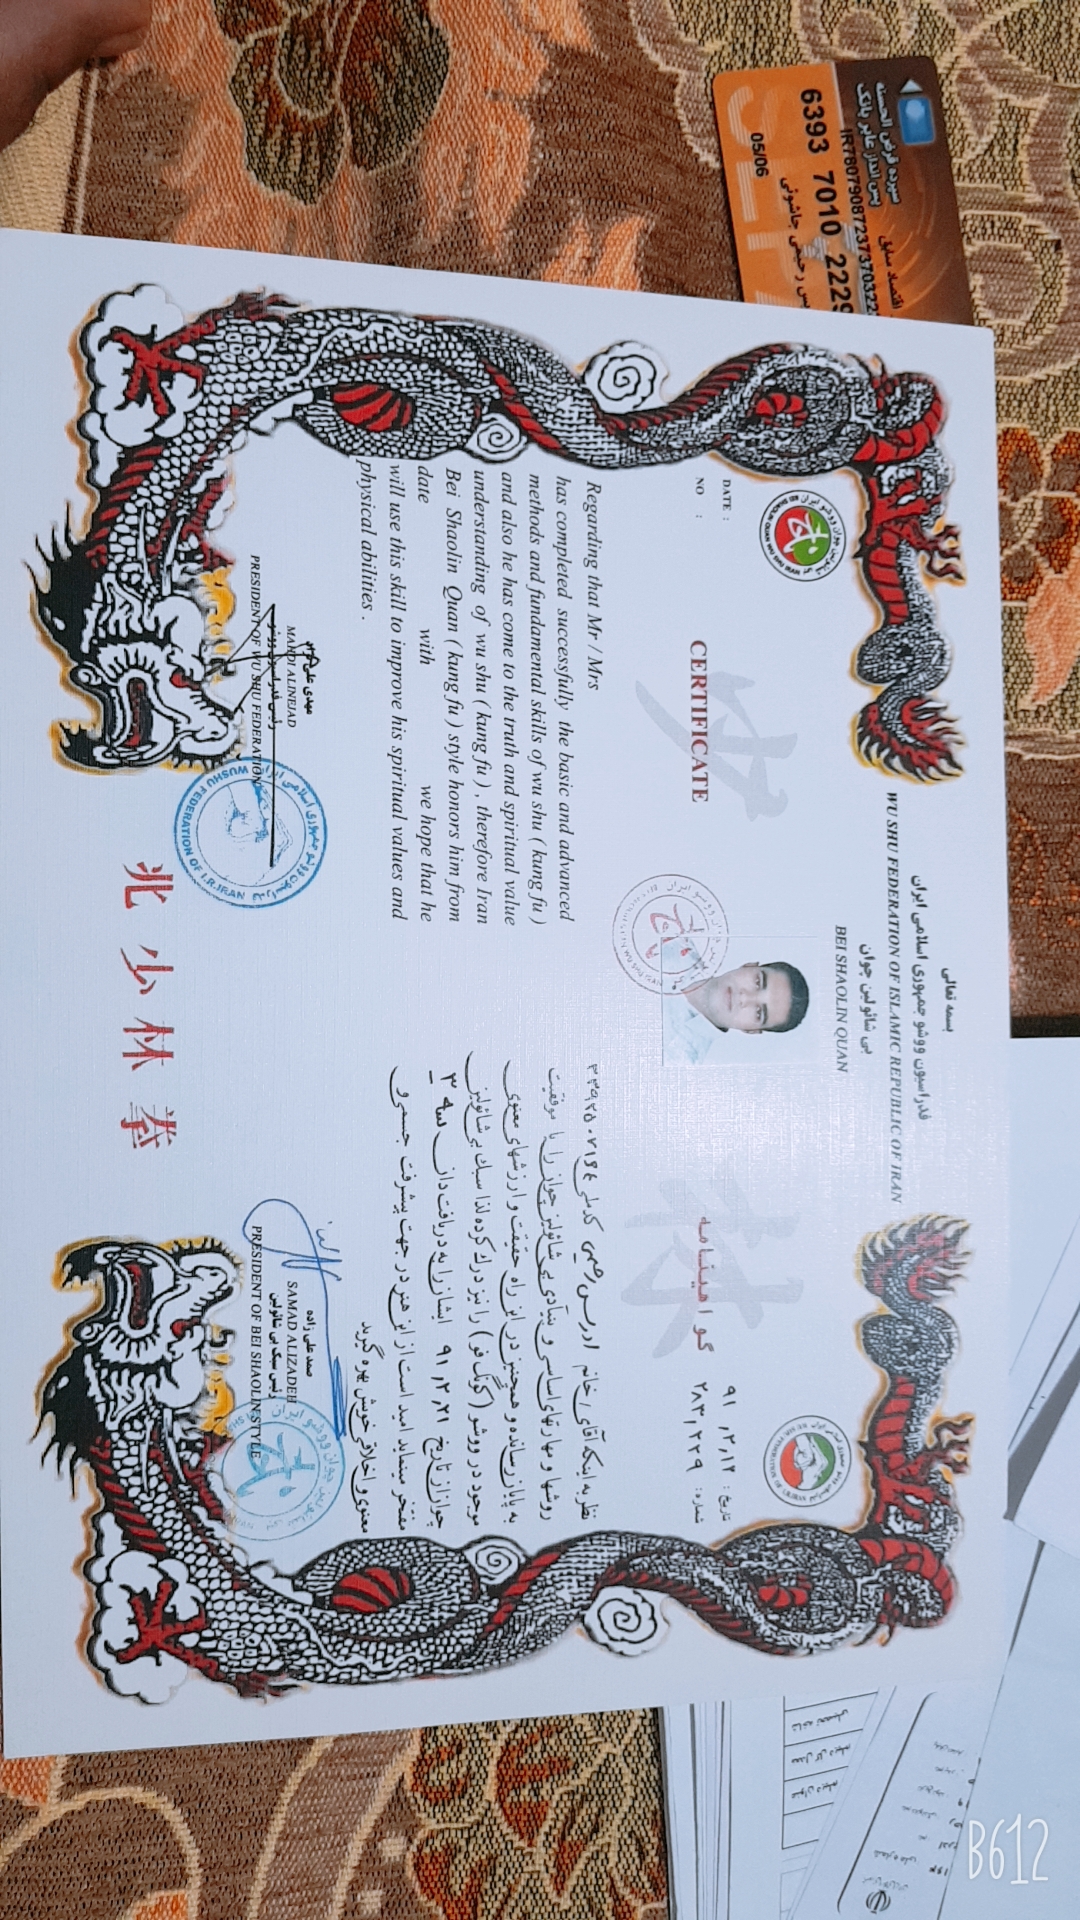 بسمه تعالی
فدراسیون ووشو جمهوری اسلامی ایران
WU SHU FEDERATION OF ISLAMIC REPUBLIC OF IRAN
بی شائولین جوان
BEI SHAOLIN QUAN
DATE :
NO :
CERTIFICATE
Regarding that Mr / Mrs
has completed successfully the basic and advanced
methods and fundamental skills of wu shu ( kung fu )
and also he has come to the truth and spiritual value
understanding of wu shu ( kung fu ) , therefore Iran
Bei Shaolin Quan ( kung fu ) style honors him from
date with we hope that he
will use this skill to improve his spiritual values and
physical abilities .
تاریخ : ۹۱,۲,۱۲
شماره : ۲۸۳,۲۲۹
گواهینامه
نظر به اینکه آقای / خانم ادریس رحیمی کد ملی
روشها و مهارتهای اساسی و بنیادی بی شائولین جوان را با موفقیت
به پایان رسانده و همچنین در این راه حقیقت و ارزشهای معنوی
موجود در ووشو (کونگ فو) را نیز درک کرده لذا سبک بی شائولین
جوان از تاریخ ۹۱,۲,۲۱ ایشان را به دریافت دان سه ۳
مفتخر مینماید امید است از این هنر در جهت پیشرفت جسمی و
معنوی و اخلاقی خویش بهره گیرید
مهدی علی نژاد
MAHDI ALINEJAD
رئیس فدراسیون ووشو
PRESIDENT OF WU SHU FEDERATION
WUSHU FEDERATION OF I.R.IRAN
صمد علی زاده
SAMAD ALIZADEH
رئیس سبک بی شائولین
PRESIDENT OF BEI SHAOLIN STYLE
北 少 林 拳
سپرده قرض الحسنه
پس انداز عابر بانک
6393 7010 2229
05/06
B612